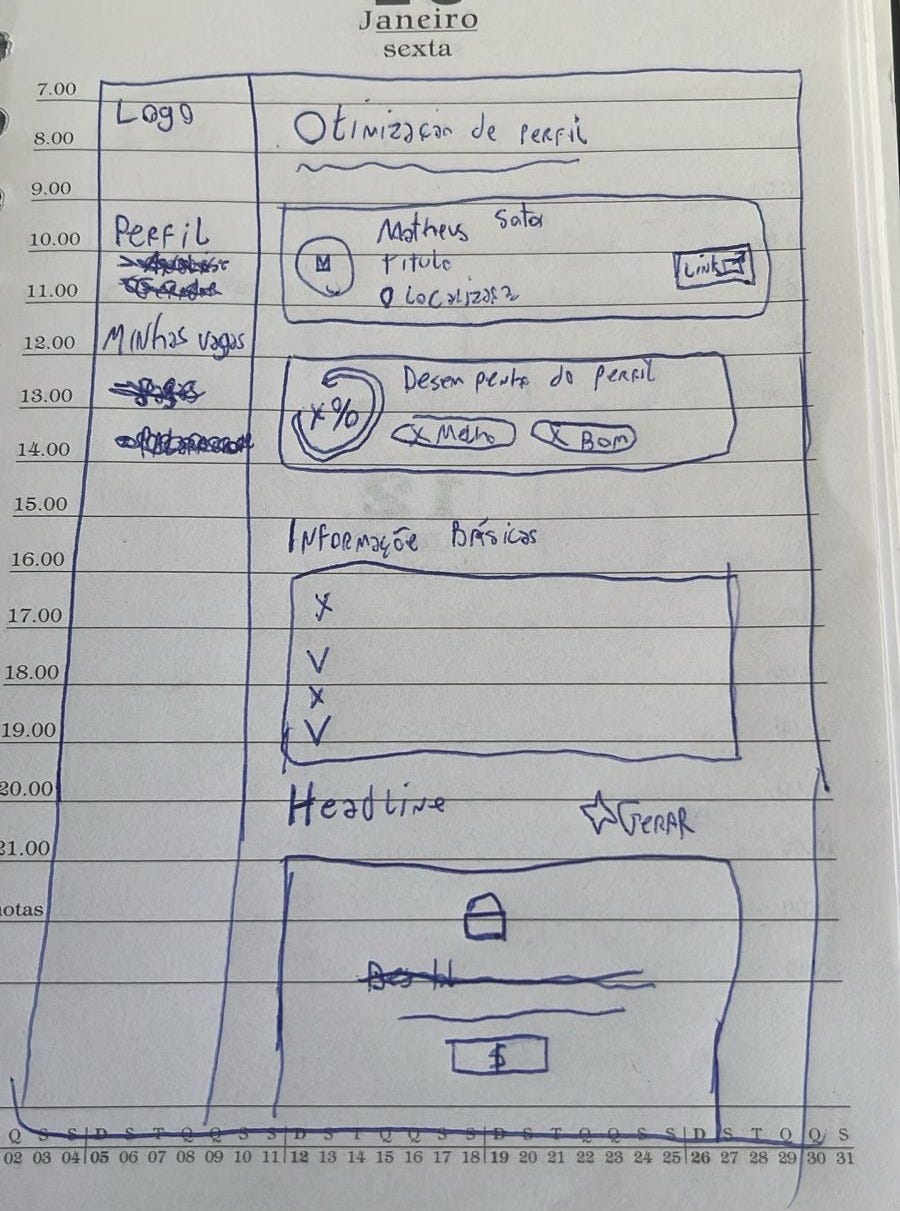 Janeiro
sexta
7.00
8.00
9.00
10.00
11.00
12.00
13.00
14.00
15.00
16.00
17.00
18.00
19.00
20.00
21.00
notas
Logo
Perfil
Minhas vagas
Otimização de perfil
M
Matheus
Título
Localização
Link
X%
Desempenho do perfil
X Melho
X Bom
Informaçõe Básicas
X
V
X
V
Headline
GERAR
$
Q S S D S T Q Q S S D S T Q Q S S D S T Q Q S S D S T Q Q S
02 03 04 05 06 07 08 09 10 11 12 13 14 15 16 17 18 19 20 21 22 23 24 25 26 27 28 29 30 31